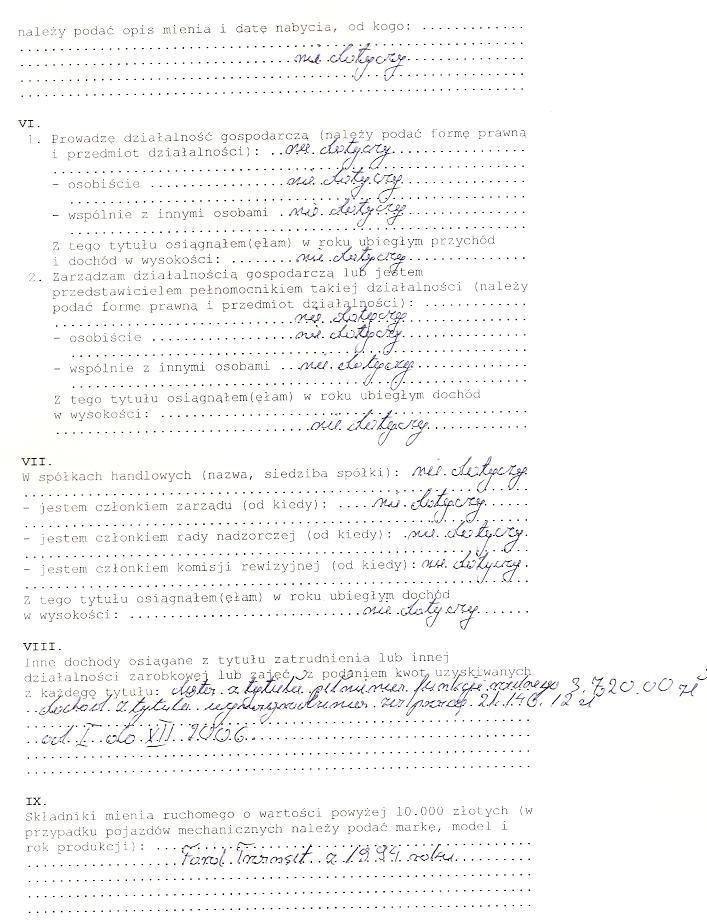 należy podać opis mienia i datę nabycia, od kogo: .............
nie dotyczy
VI.
1. Prowadzę działalność gospodarczą (należy podać formę prawną
i przedmiot działalności): nie dotyczy
- osobiście nie dotyczy
- wspólnie z innymi osobami nie dotyczy
Z tego tytułu osiągnąłem(ęłam) w roku ubiegłym przychód
i dochód w wysokości: nie dotyczy
2. Zarządzam działalnością gospodarczą lub jestem
przedstawicielem pełnomocnikiem takiej działalności (należy
podać formę prawną i przedmiot działalności): .............
nie dotyczy
- osobiście nie dotyczy
- wspólnie z innymi osobami nie dotyczy
Z tego tytułu osiągnąłem(ęłam) w roku ubiegłym dochód
w wysokości: .............
nie dotyczy
VII.
W spółkach handlowych (nazwa, siedziba spółki): nie dotyczy
- jestem członkiem zarządu (od kiedy): nie dotyczy
- jestem członkiem rady nadzorczej (od kiedy): nie dotyczy
- jestem członkiem komisji rewizyjnej (od kiedy): nie dotyczy
Z tego tytułu osiągnąłem(ęłam) w roku ubiegłym dochód
w wysokości: nie dotyczy
VIII.
Inne dochody osiągane z tytułu zatrudnienia lub innej
działalności zarobkowej lub zajęć, z podaniem kwot uzyskiwanych
z każdego tytułu: z tytułu pełnienia funkcji radnego 3.720.00 zł
dochód z tytułu wynagrodzenia za pracę 21.140.12 zł
od I do XII 2006
IX.
Składniki mienia ruchomego o wartości powyżej 10.000 złotych (w
przypadku pojazdów mechanicznych należy podać markę, model i
rok produkcji): .............
Ford Transit z 1994 roku